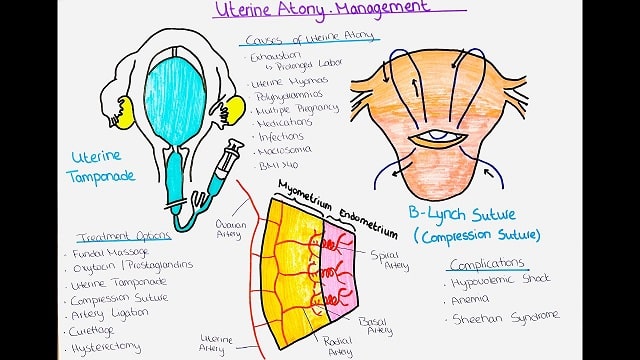 Uterine Atony - Management
Causes of Uterine Atony
· Exhaustion
↳ Prolonged Labor
· Uterine Myomas
Polyhydramnios
· Multiple Pregnancy
· Medications
· Infections
· Macrosomia
· BMI >40
Uterine
Tamponade
B-Lynch Suture
(Compression Suture)
Treatment Options
· Fundal Massage
· Oxytocin / Prostaglandins
· Uterine Tamponade
· Compression Suture
· Artery Ligation
· Curettage
· Hysterectomy
Myometrium
Endometrium
Ovarian
Artery
Spiral
Artery
Basal
Artery
Radical
Artery
Uterine
Artery
Complications
· Hypovolemic Shock
· Anemia
· Sheehan Syndrome